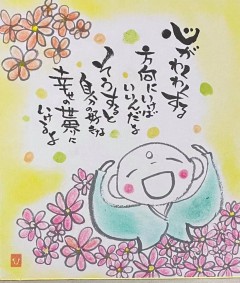 心がわくわくする
方向にいけば
いいんだよ
そうすると
自分の好きな
幸せの世界に
いけるよ